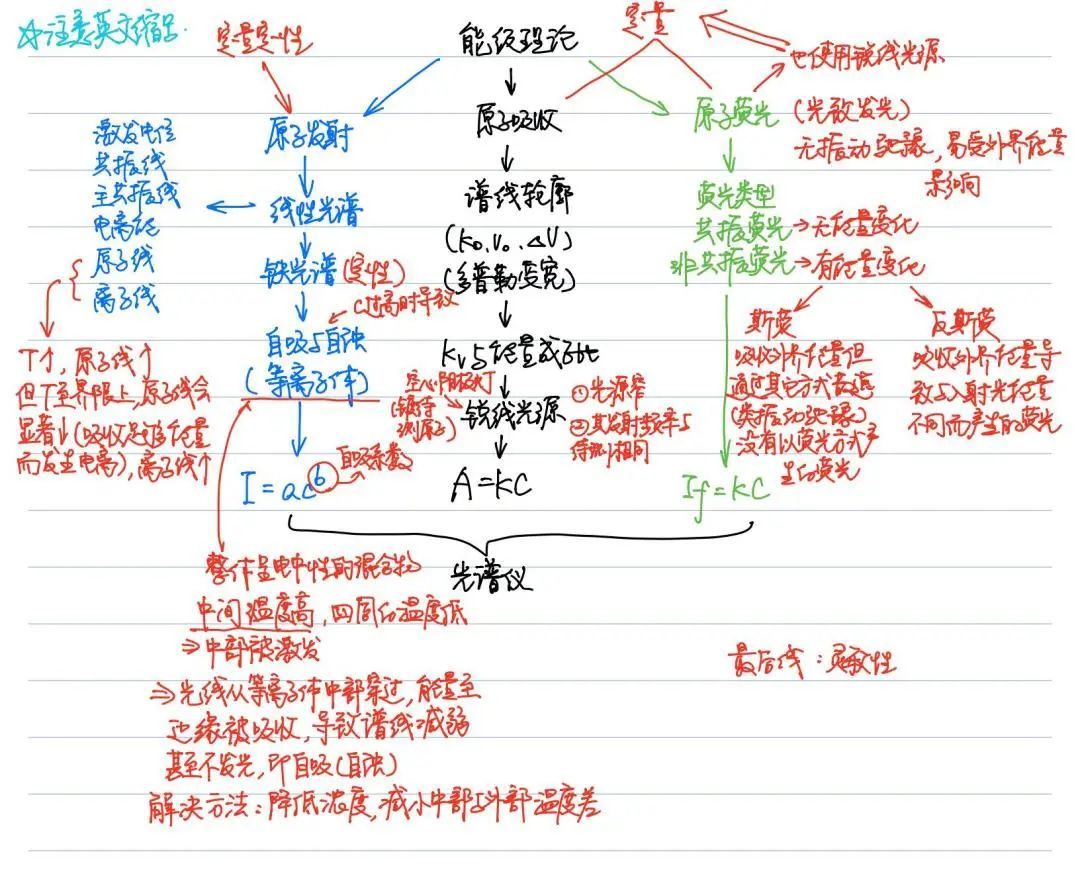 ☆注意英文缩写.
定量定性
能级理论
定量
也使用锐线光源
原子发射
原子吸收
原子荧光
(光致发光)
无振动弛豫,易受外界能量
影响
激发电位
共振线
主共振线
电离能
原子线
离子线
线性光谱
谱线轮廓
(K₀.V₀.△V)
(多普勒变宽)
荧光类型
共振荧光→无能量变化
非共振荧光→有能量变化
铁光谱(定性)
C过高时导致
自吸与自蚀
(等离子体)
T↑,原子线↑
但T至界限上,原子线会
显著↓(吸收足够能量
而发生电离),离子线↑
Kv与能量成正比
空心阴极灯
(镀待
测原子)
锐线光源
①光源窄
②其发射频率与
待测相同
斯荧
吸收外界能量但
通过其它方式
(类振动弛豫)
没有以荧光方式产
生的荧光
反斯荧
吸收外界能量导
致与入射光能量
不同而产生的荧光
I=acᵇ
自吸系数
A=KC
If=KC
光谱仪
整体呈电中性的混合物
中间温度高,四周的温度低
⇒中部被激发
⇒光线从等离子体中部穿过,能量至
边缘被吸收,导致谱线减弱
甚至不发光,即自吸(自蚀)
解决方法:降低浓度,减小中部与外部温度差
最后线:灵敏性